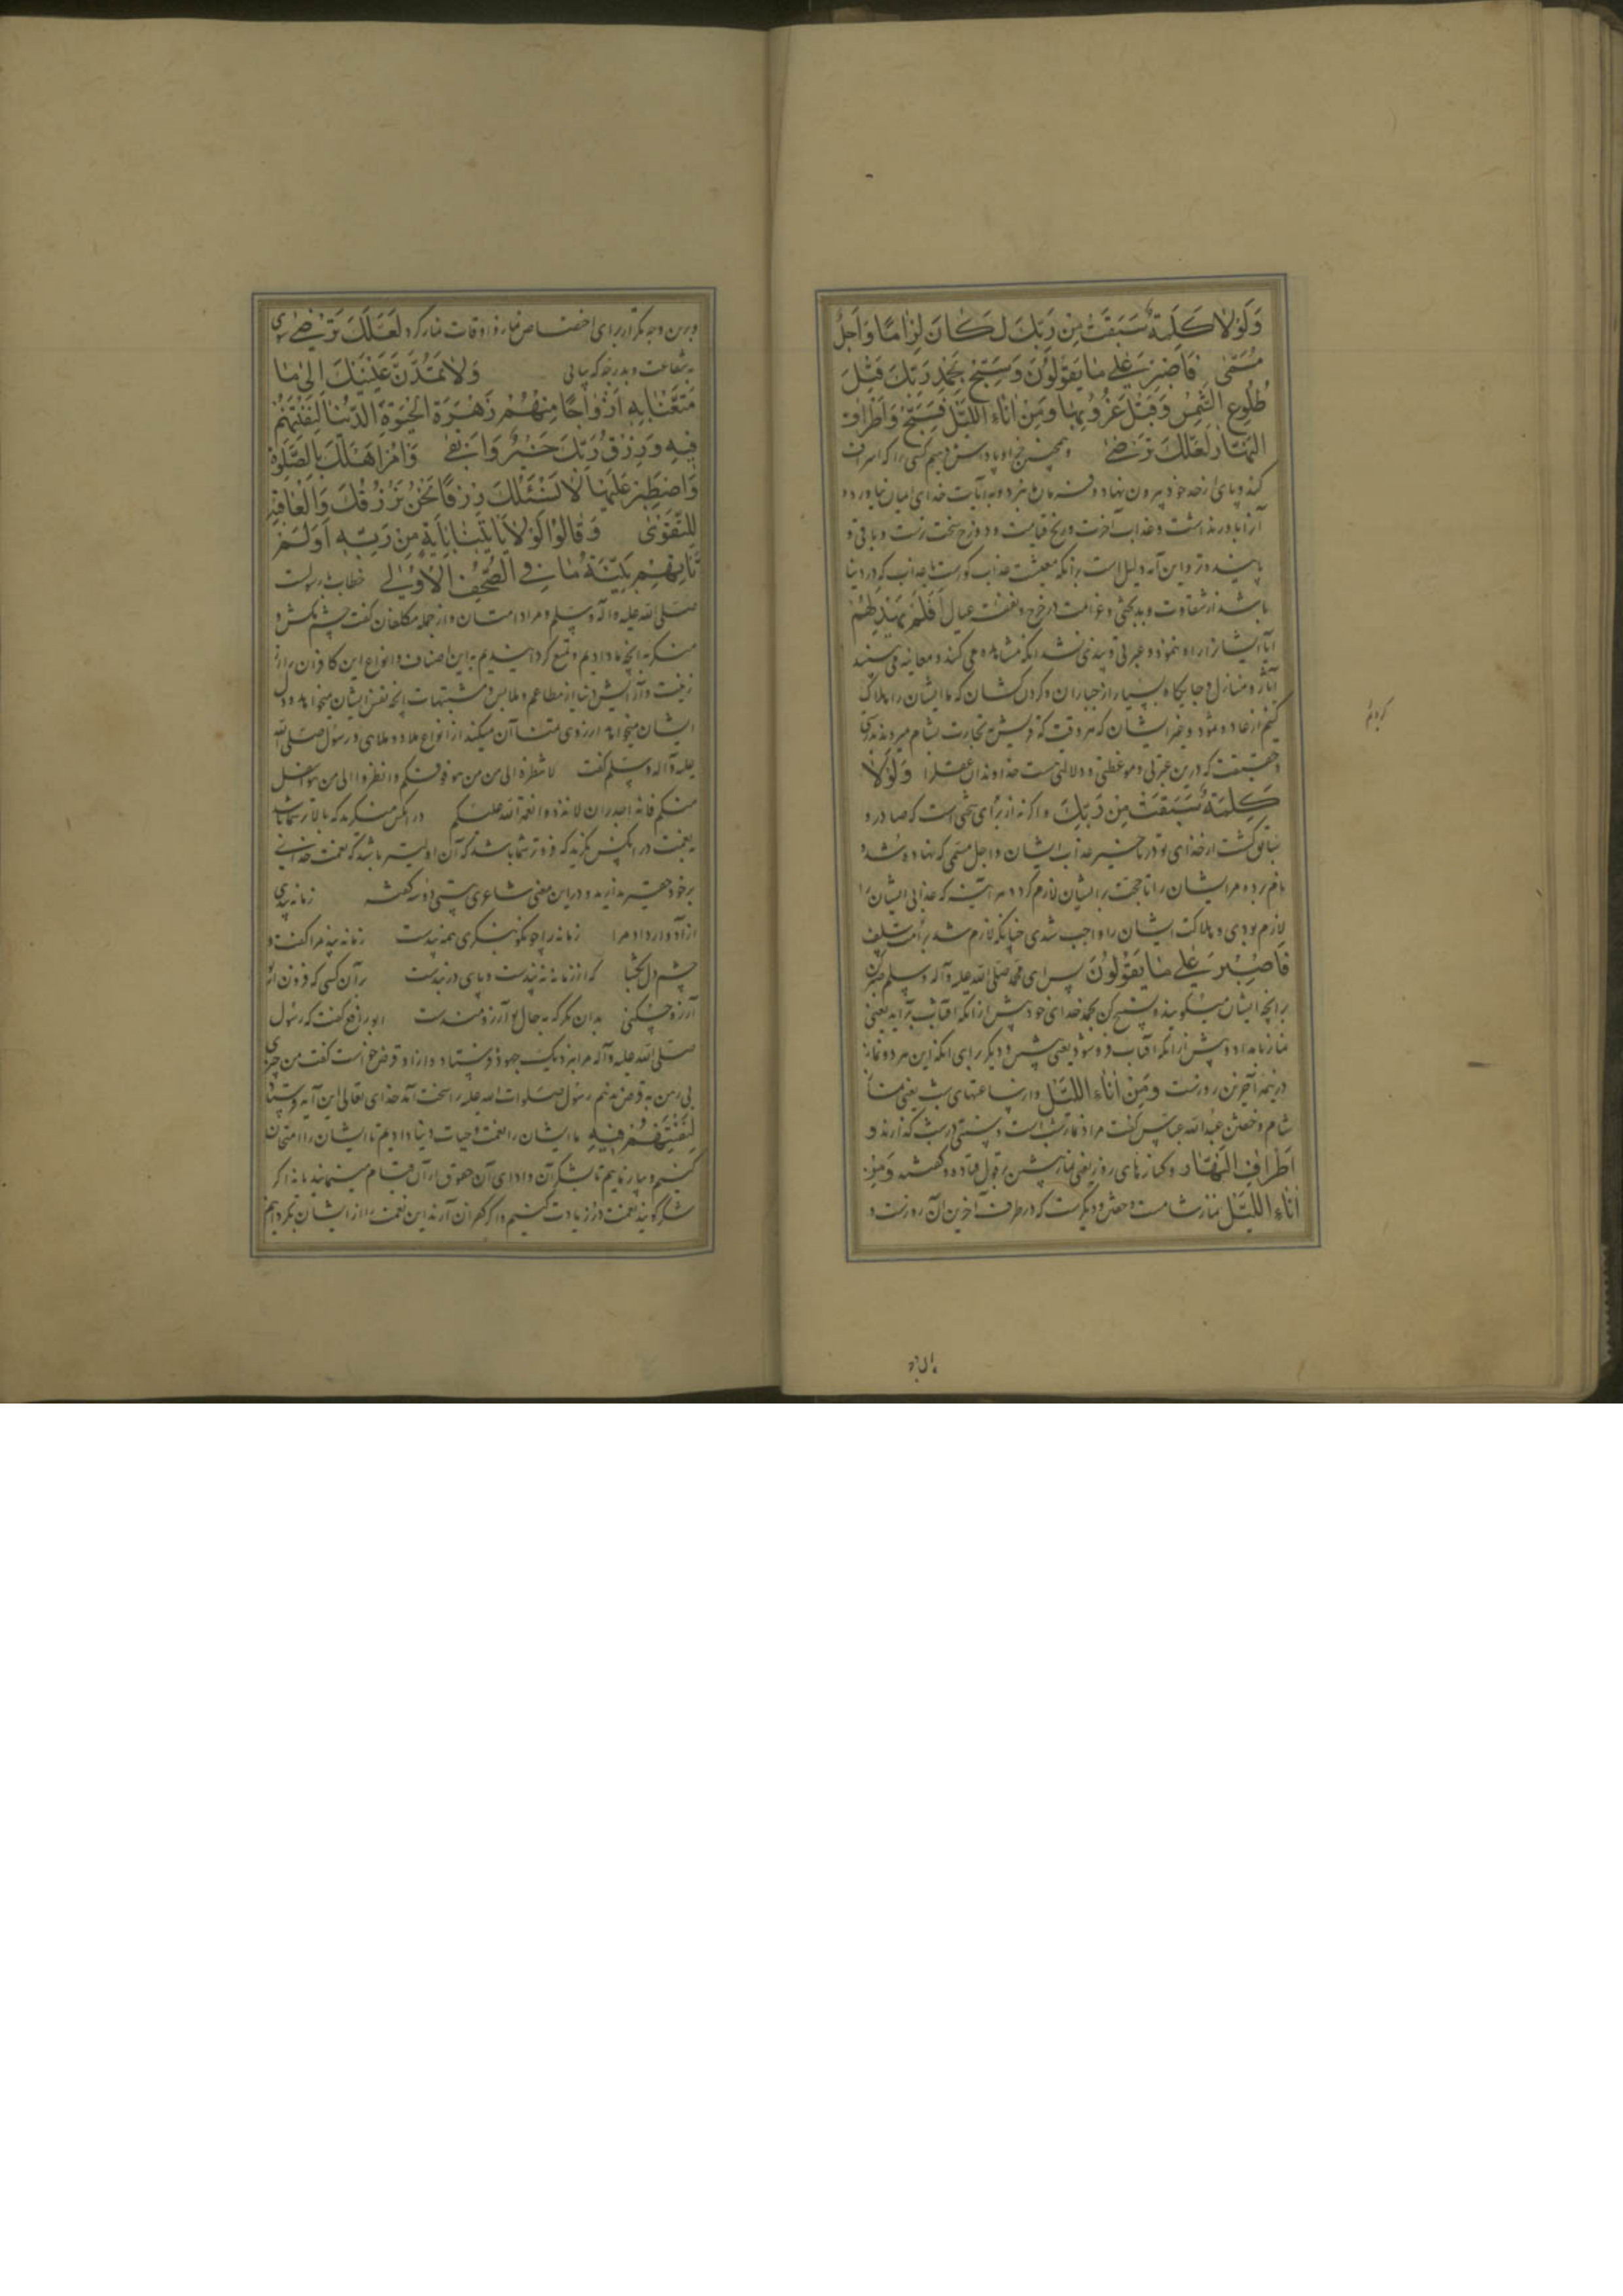 وَلَوْلَا كَلِمَةٌ سَبَقَتْ مِن رَبِّكَ لَكَانَ لِزَامًا وَاَجَلٌ
مُسَمًّى فَاصْبِرْ عَلٰى مَا يَقُولُونَ وَسَبِّحْ بِحَمْدِ رَبِّكَ قَبْلَ
طُلُوعِ الشَّمْسِ وَقَبْلَ غُرُوبِهَا وَمِنْ اٰنَاءِ اللَّيْلِ فَسَبِّحْ وَاَطْرَافَ
النَّهَارِ لَعَلَّكَ تَرْضٰى وهمچنین جزا و پاداش دهیم کسی را که اسراف
کند و پای از حد خود بیرون نهاد و به آیات خدای ایمان نیاورد و
آنرا باور نداشت و عذاب آخرت و رنج قیامت و دوزخ سخت ترست و باقی و
پاینده تر و این آیه دلیل است بر آنکه معیشت عذاب کورست یا عذاب که در دنیا
باشد از شقاوت و بدبختی و غرامت در خرج و نفقت عیال اَفَلَمْ يَهْدِ لَهُمْ
آیا ایشانرا راه ننمود و عبرتی و پندی نشد آنکه مشاهده می کنند و معاینه می بینند
آثار و منازل و جایگاه بسیار از جباران و گردن کشان که ما ایشان را هلاک
کنیم از عاد و ثمود و غیر ایشان که هر وقت که قریش بتجارت بشام میروند
و حقیقت که درین عبرتی و موعظتی و دلالتی هست خداوندان عقلرا وَلَوْلَا
كَلِمَةٌ سَبَقَتْ مِن رَبِّكَ و اگر نه از برای سخنی است که صادر و
سابق گشت از خدای تو در تاخیر عذاب ایشان و اجل مسمی که نهاده شد و
نام برده مر ایشان را تا حجت بر ایشان لازم گردد هر آینه که عذاب ایشان را
لازم بودی و هلاکت ایشان را واجب شدی چنانکه لازم شد بر امت سلف
فَاصْبِرْ عَلٰى مَا يَقُولُونَ پس ای محمد صلی الله علیه و آله و سلم صبر کن
بر آنچه ایشان میگویند و تسبیح کن بحمد خدای خود پیش از آنکه آفتاب برآید یعنی
نماز بامداد و پیش از آنکه آفتاب فرو شود یعنی پیشین و دیگر برای آنکه این هر دو نماز
در نیمه آخرین روزست وَمِنْ اٰنَاءِ اللَّيْلِ و از ساعتهای شب یعنی نماز
شام و خفتن عبدالله عباس گفت مراد نماز شب است و سنتی در شب گذارند و
اَطْرَافَ النَّهَارِ و کنارهای روز یعنی نماز پیشین بر قول قتاده و گفتند وَمِنْ
اٰنَاءِ اللَّيْلِ نماز شامست و خفتن و دیگرست که در طرف آخرین آن روزست و
وبرین وجه تکرار برای اختصاص نماز و اوقات نماز کرد لَعَلَّكَ تَرْضٰى
بشفاعت و بدرجه که بیابی وَلَا تَمُدَّنَّ عَيْنَيْكَ اِلٰى مَا
مَتَّعْنَا بِهِ اَزْوَاجًا مِنْهُمْ زَهْرَةَ الْحَيٰوةِ الدُّنْيَا لِنَفْتِنَهُمْ
فِيهِ وَرِزْقُ رَبِّكَ خَيْرٌ وَاَبْقٰى وَاْمُرْ اَهْلَكَ بِالصَّلٰوةِ
وَاصْطَبِرْ عَلَيْهَا لَا نَسْئَلُكَ رِزْقًا نَحْنُ نَرْزُقُكَ وَالْعَاقِبَةُ
لِلتَّقْوٰى وَقَالُوا لَوْلَا يَاْتِينَا بِاٰيَةٍ مِنْ رَبِّهِ اَوَلَمْ
تَاْتِهِمْ بَيِّنَةُ مَا فِي الصُّحُفِ الْاُولٰى خطاب با رسولست
صلی الله علیه و آله و سلم و مراد امتان و از جمله مکلفان گفت چشم مکش و
منگر به آنچه ما دادیم و تمتع گردانیدیم به این اصناف و انواع این کافران را از
زینت و آرایش دنیا از مطاعم و ملابس و مشتهیات آنچه نفس ایشان میخواهد و دل
ایشان میخواهد آرزوی تمنا آن میکنند از انواع ملاذ و ملاهی و رسول صلی الله
علیه و آله و سلم گفت لا تنظروا الی من هو فوقکم وانظروا الی من هو اسفل
منکم فانه اجدر ان لا تزدروا نعمة الله علیکم در آنکس منگرید که بالاتر شما باشد
بنعمت در آنکس نگرید که فروتر شما باشد که آن اولیتر باشد که نعمت خدای
بر خود حقیر ندارید و در این معنی شاعری بیتی دو سه گفته زمانه پندی
آزادوار داد مرا زمانه را چو نکو بنگری همه پندست زمانه پند مرا گفت و
چشم دل بگشا که از زمانه نه پندست و پای در بندست بر آن کسی که فزون از تو
آرزو چه کنی بدان نگر که به حال تو آرزومندست ابو رافع گفت که رسول
صلی الله علیه و آله مرا بنزدیک جهود فرستاد و از او قرض خواست گفت من چیزی
بی رهن به قرض ندهم رسول صلوات الله علیه را سخت آمد خدای تعالی این آیه فرستاد
لِنَفْتِنَهُمْ فِيهِ ما ایشان را نعمت و حیات دنیا دادیم تا ایشان را امتحان
کنیم و بیازماییم تا بشکر آن و ادای آن حقوق از آن قیام مینمایند یا نه اگر
شکر گویند نعمت را زیادت کنیم و اگر کفران آرند این نعمت را از ایشان بگردانیم